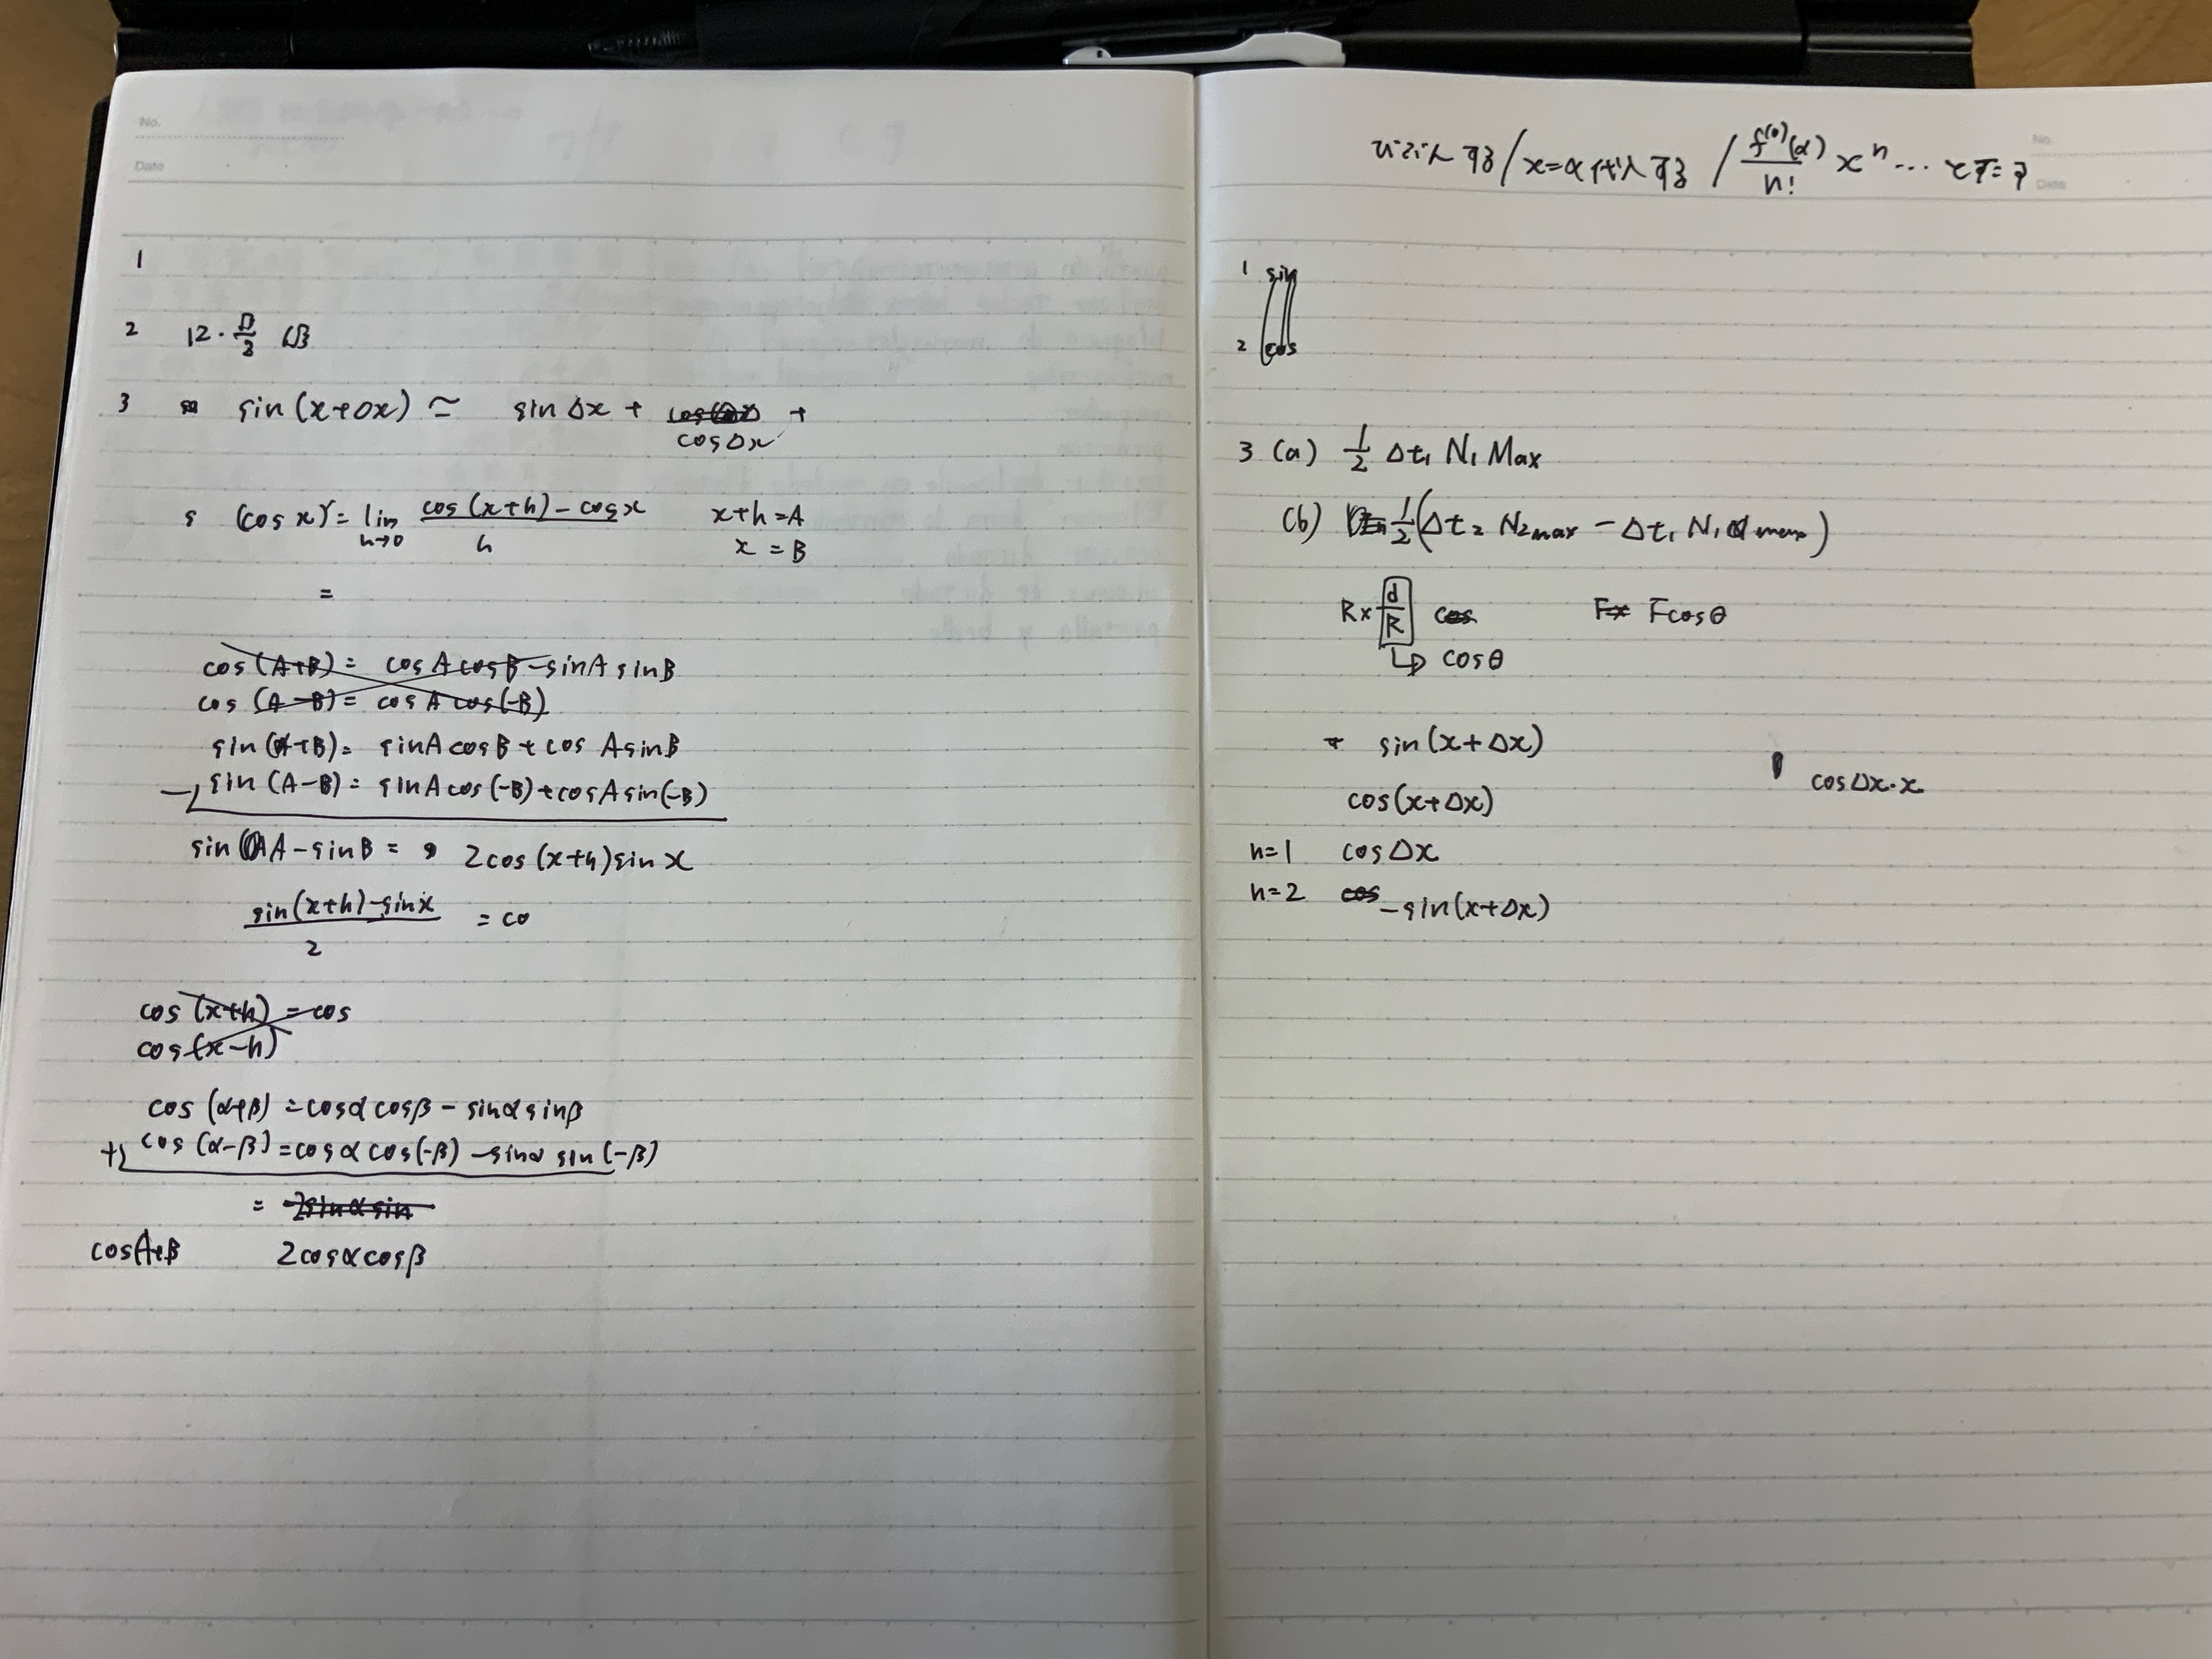 No.
Date
1
2 12・√3/2 6√3
3 sin(x+Δx) ≃ sinΔx + cosΔx +
(cos x)' = lim h→0 cos(x+h)-cosx / h x+h=A
x=B
=
cos(A+B)= cosAcosB-sinAsinB
cos(A-B)= cosAcos(-B)
sin(A+B)= sinAcosB+cosAsinB
-) sin(A-B)= sinAcos(-B)+cosAsin(-B)
sinA-sinB= 2cos(x+h)sin x
sin(x+h)-sinx / 2 = co
cos(x+h)=cos
cos(x-h)
cos(α+β)=cosαcosβ-sinαsinβ
+) cos(α-β)=cosαcos(-β)-sinαsin(-β)
= 2sinαsin
cosA+B 2cosαcosβ
No.
Date
する/x=α代入する/ f⁽ⁿ⁾(α)/n! xⁿ…
1 sin
2 cos
3 (a) 1/2 Δt₁ N₁ Max
(b) 1/2(Δt₂ N₂max - Δt₁ N₁ max)
R× d/R cos Fx Fcosθ
↳ cosθ
sin(x+Δx)
cosΔx・x
cos(x+Δx)
n=1 cosΔx
n=2 cos -sin(x+Δx)